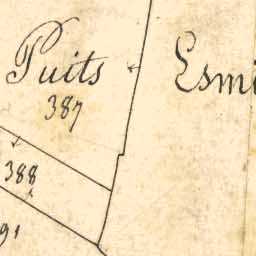 Puits
387
Esmi
388
91